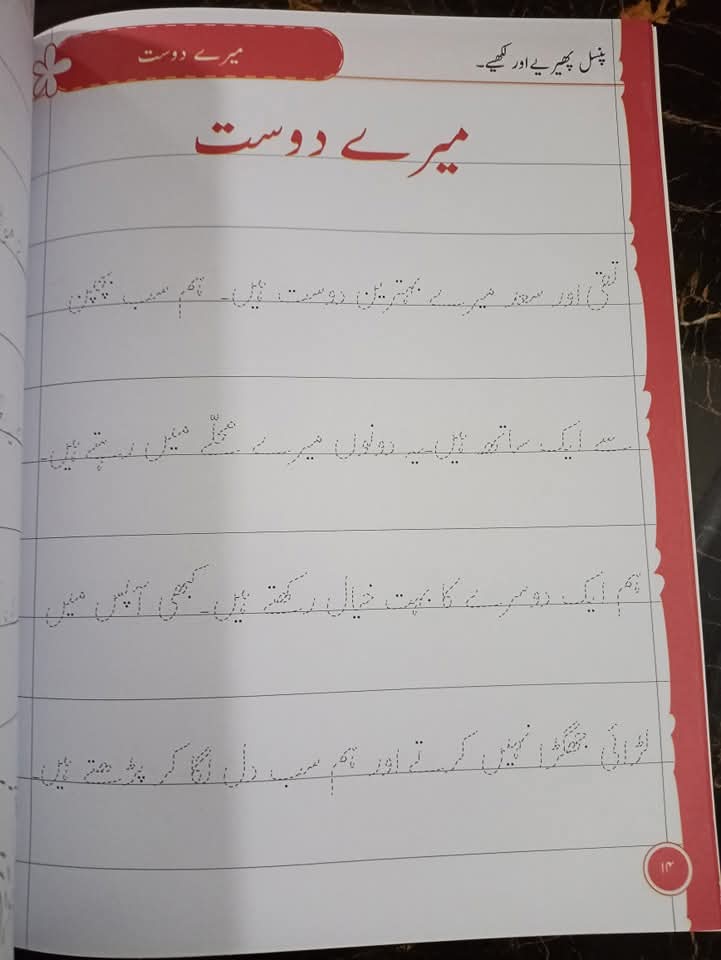 پنسل پھیریے اور لکھیے۔
میرے دوست
میرے دوست
تقی اور سعد میرے بہترین دوست ہیں۔ ہم سب بچپن
سے ایک ساتھ ہیں۔ یہ دونوں میرے محلّے میں رہتے ہیں۔
ہم ایک دوسرے کا بہت خیال رکھتے ہیں۔ کبھی آپس میں
لڑائی جھگڑا نہیں کرتے اور ہم سب دل لگا کر پڑھتے ہیں۔
۱۴